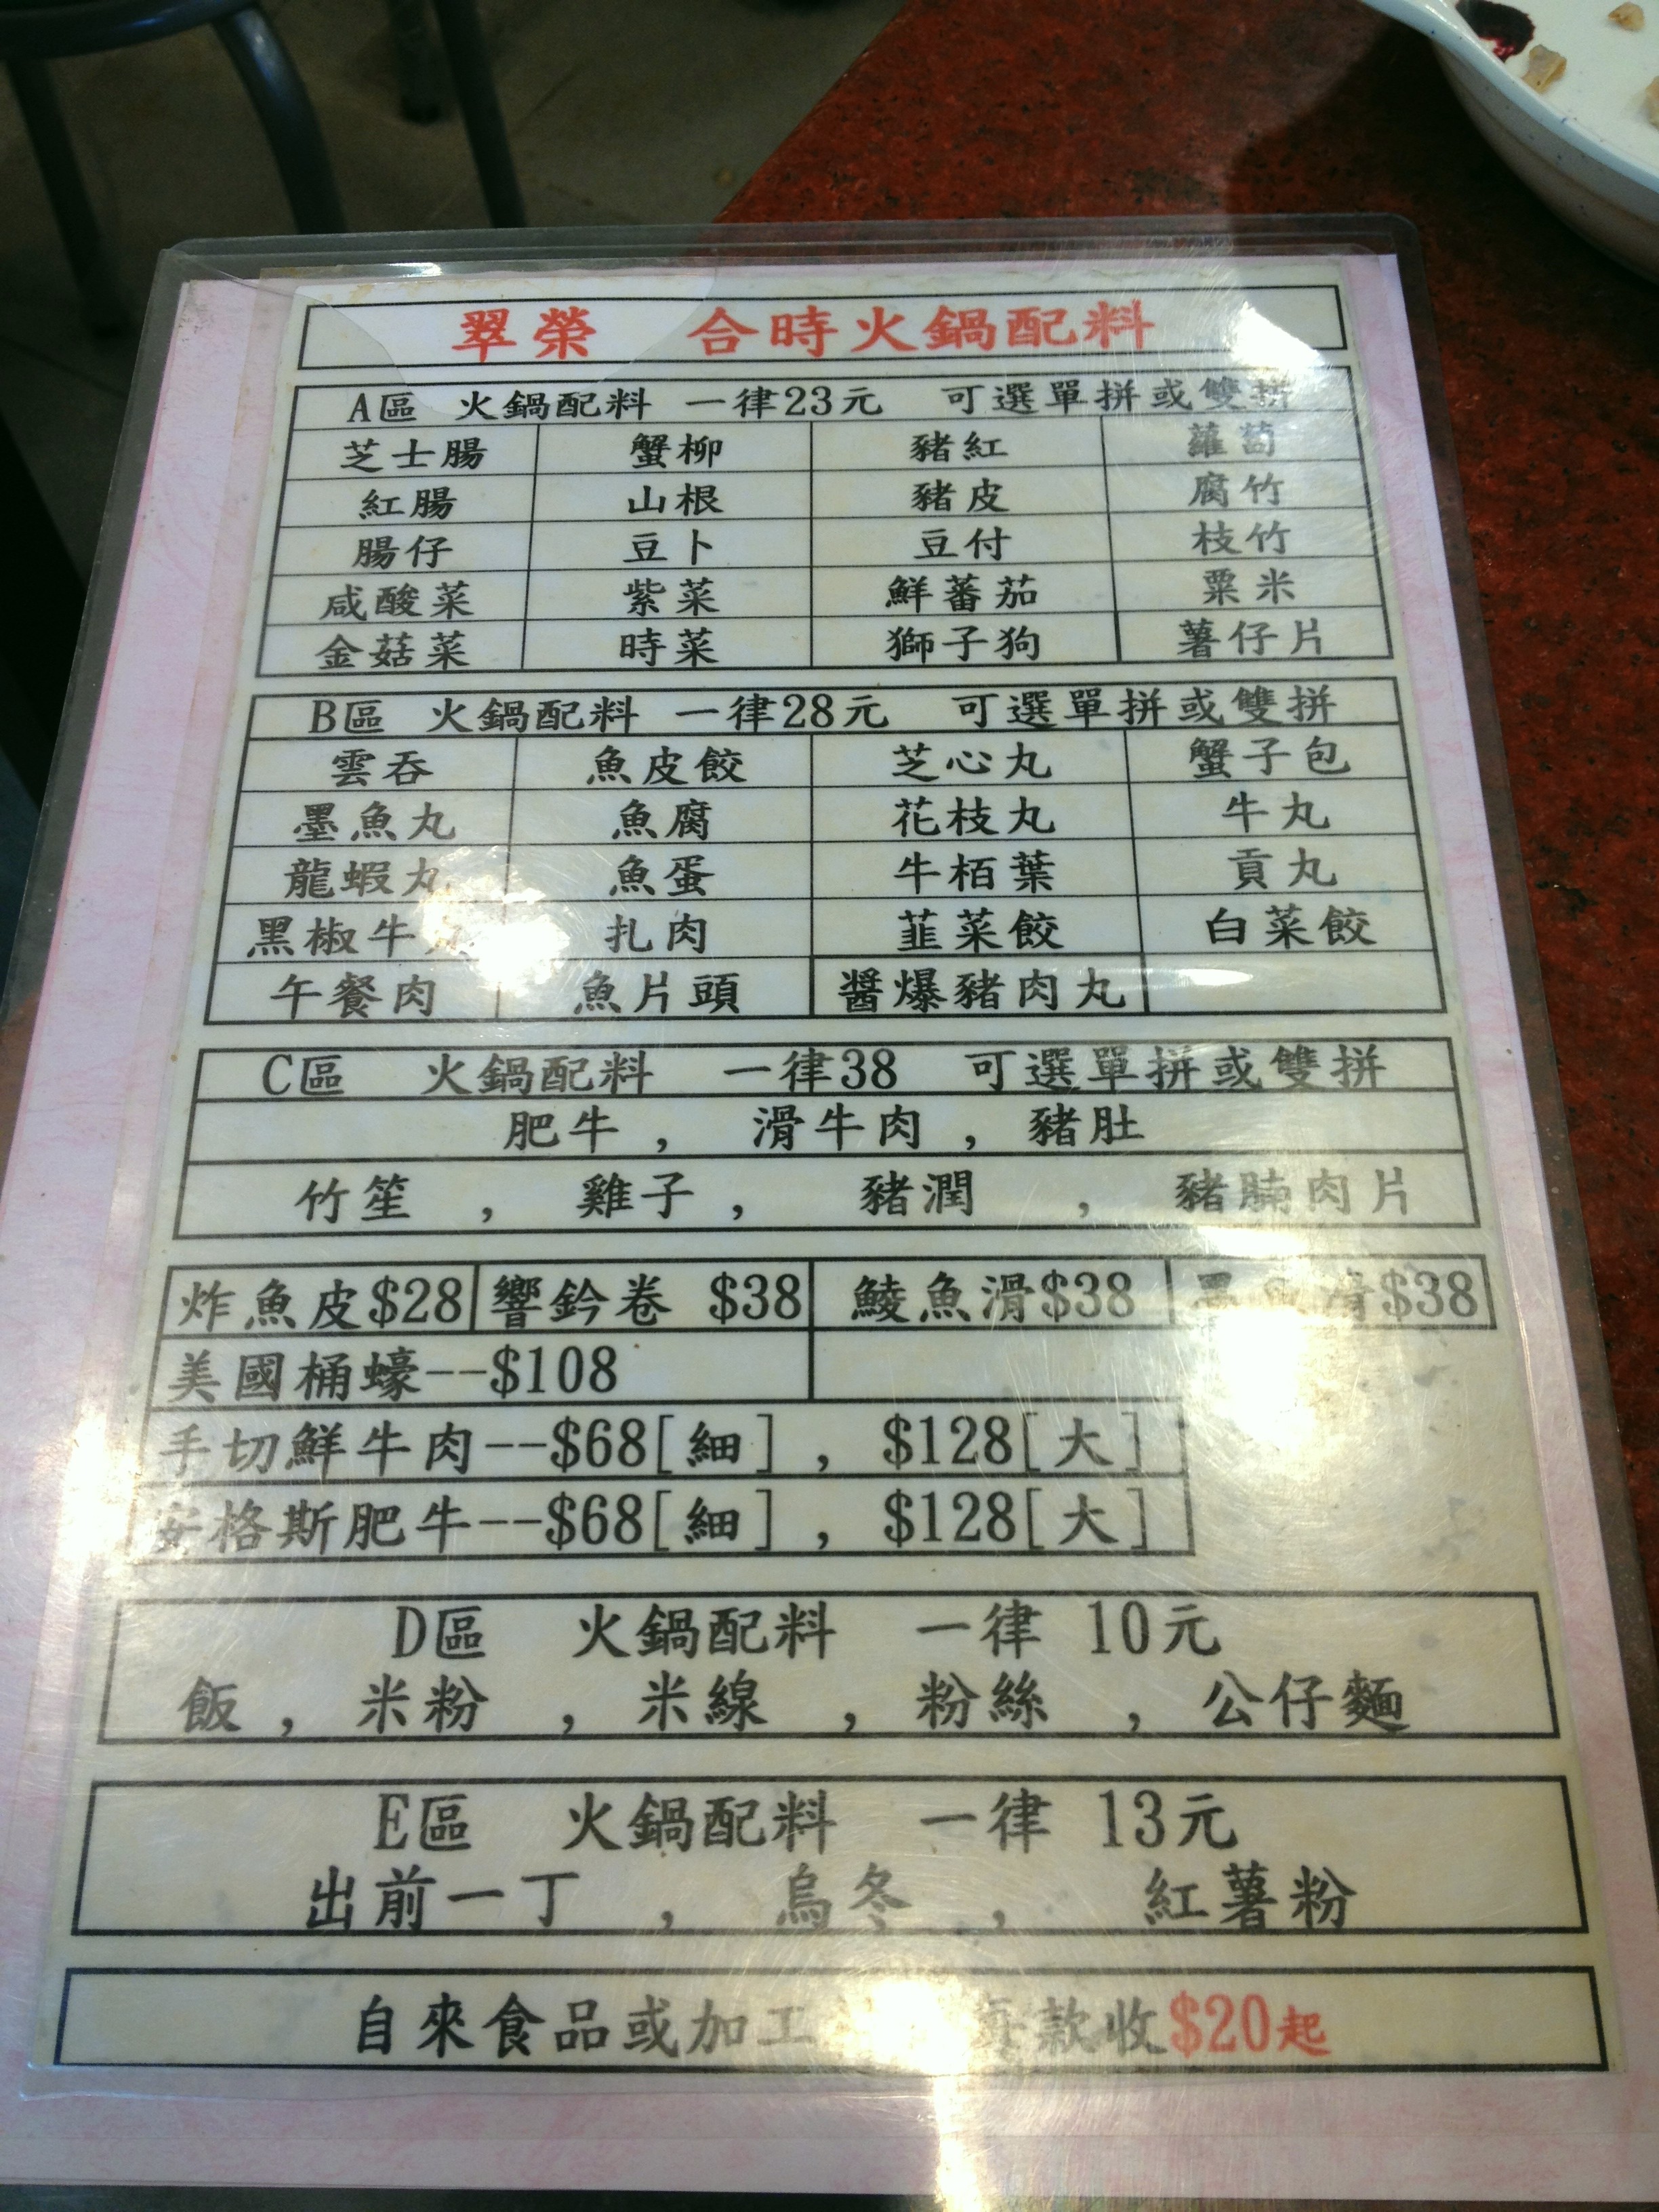 翠榮 合時火鍋配料
A區 火鍋配料 一律23元 可選單拼或雙拼
芝士腸 蟹柳 豬紅 蘿蔔
紅腸 山根 豬皮 腐竹
腸仔 豆卜 豆付 枝竹
咸酸菜 紫菜 鮮蕃茄 粟米
金菇菜 時菜 獅子狗 薯仔片
B區 火鍋配料 一律28元 可選單拼或雙拼
雲吞 魚皮餃 芝心丸 蟹子包
墨魚丸 魚腐 花枝丸 牛丸
龍蝦丸 魚蛋 牛栢葉 貢丸
黑椒牛 扎肉 韮菜餃 白菜餃
午餐肉 魚片頭 醬爆豬肉丸
C區 火鍋配料 一律38 可選單拼或雙拼
肥牛 , 滑牛肉 , 豬肚
竹笙 , 雞子 , 豬潤 , 豬腩肉片
炸魚皮$28 響鈐卷 $38 鯪魚滑$38 魚滑$38
美國桶蠔--$108
手切鮮牛肉--$68[細] , $128[大]
安格斯肥牛--$68[細] , $128[大]
D區 火鍋配料 一律 10元
飯 , 米粉 , 米線 , 粉絲 , 公仔麵
E區 火鍋配料 一律 13元
出前一丁 , 烏冬 , 紅薯粉
自來食品或加工 款收$20起